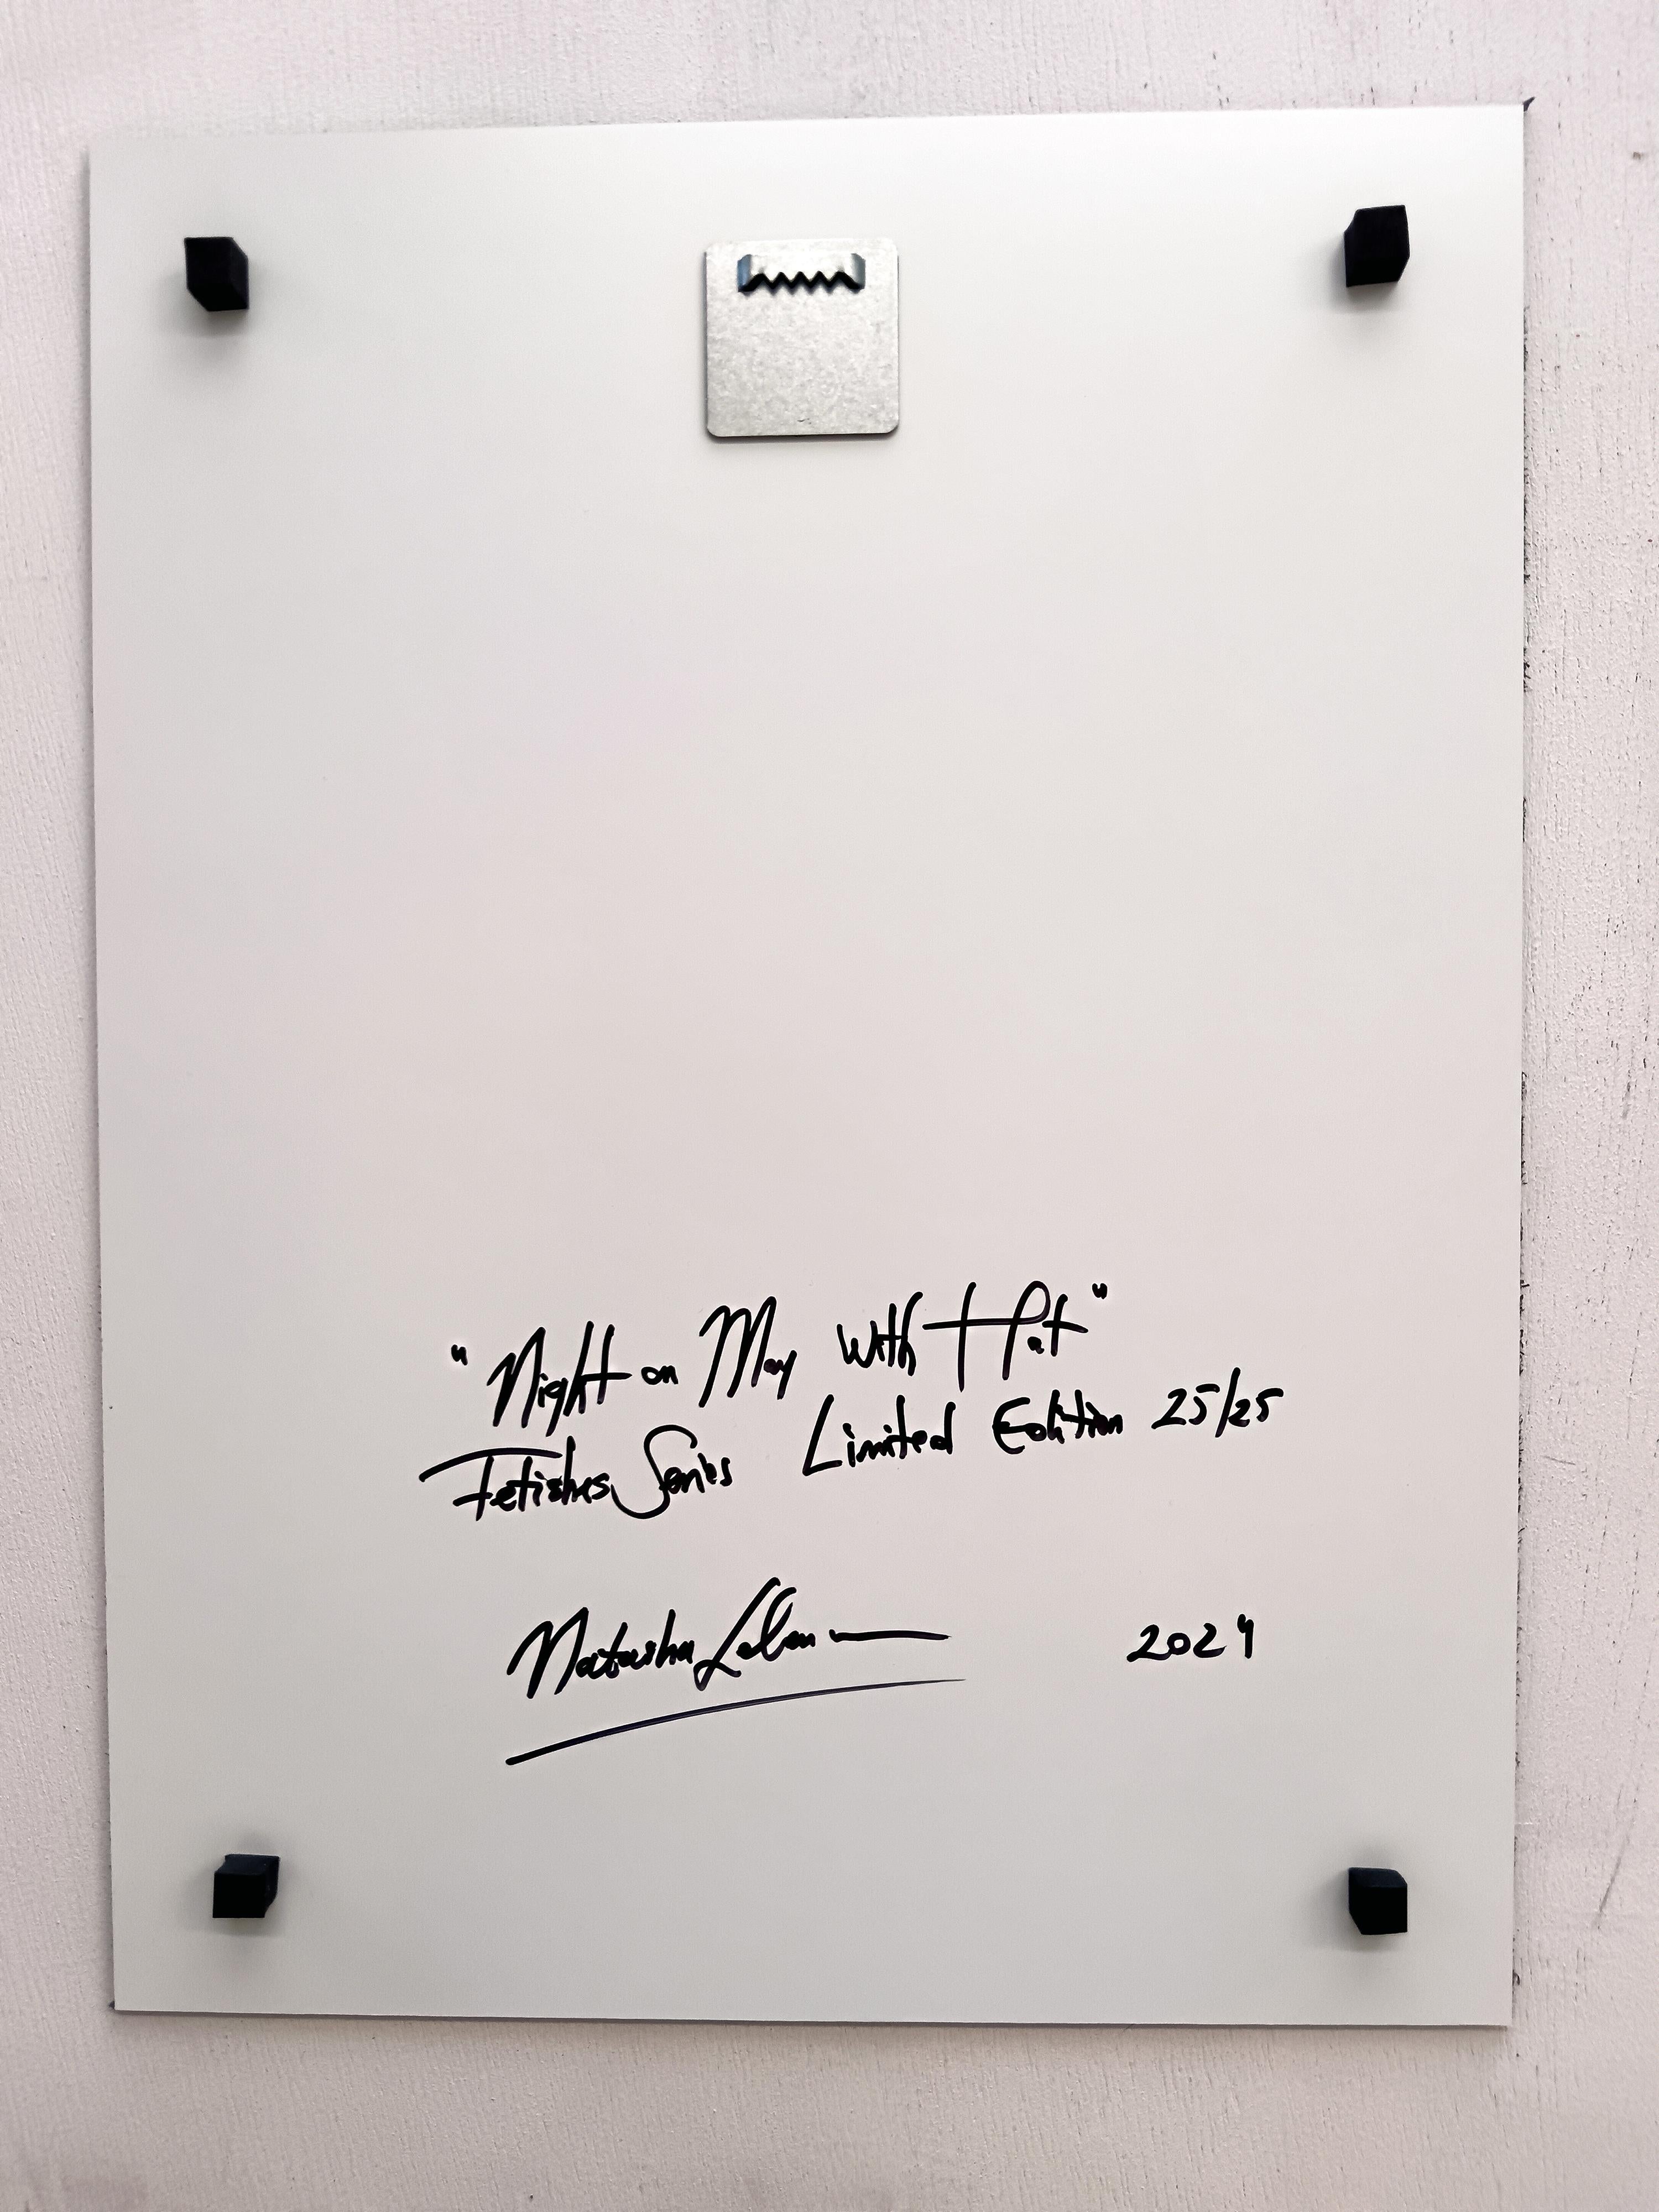 "Night on May with Hat"
Fetishes Series Limited Edition 25/25
Natasha Lelen
2024